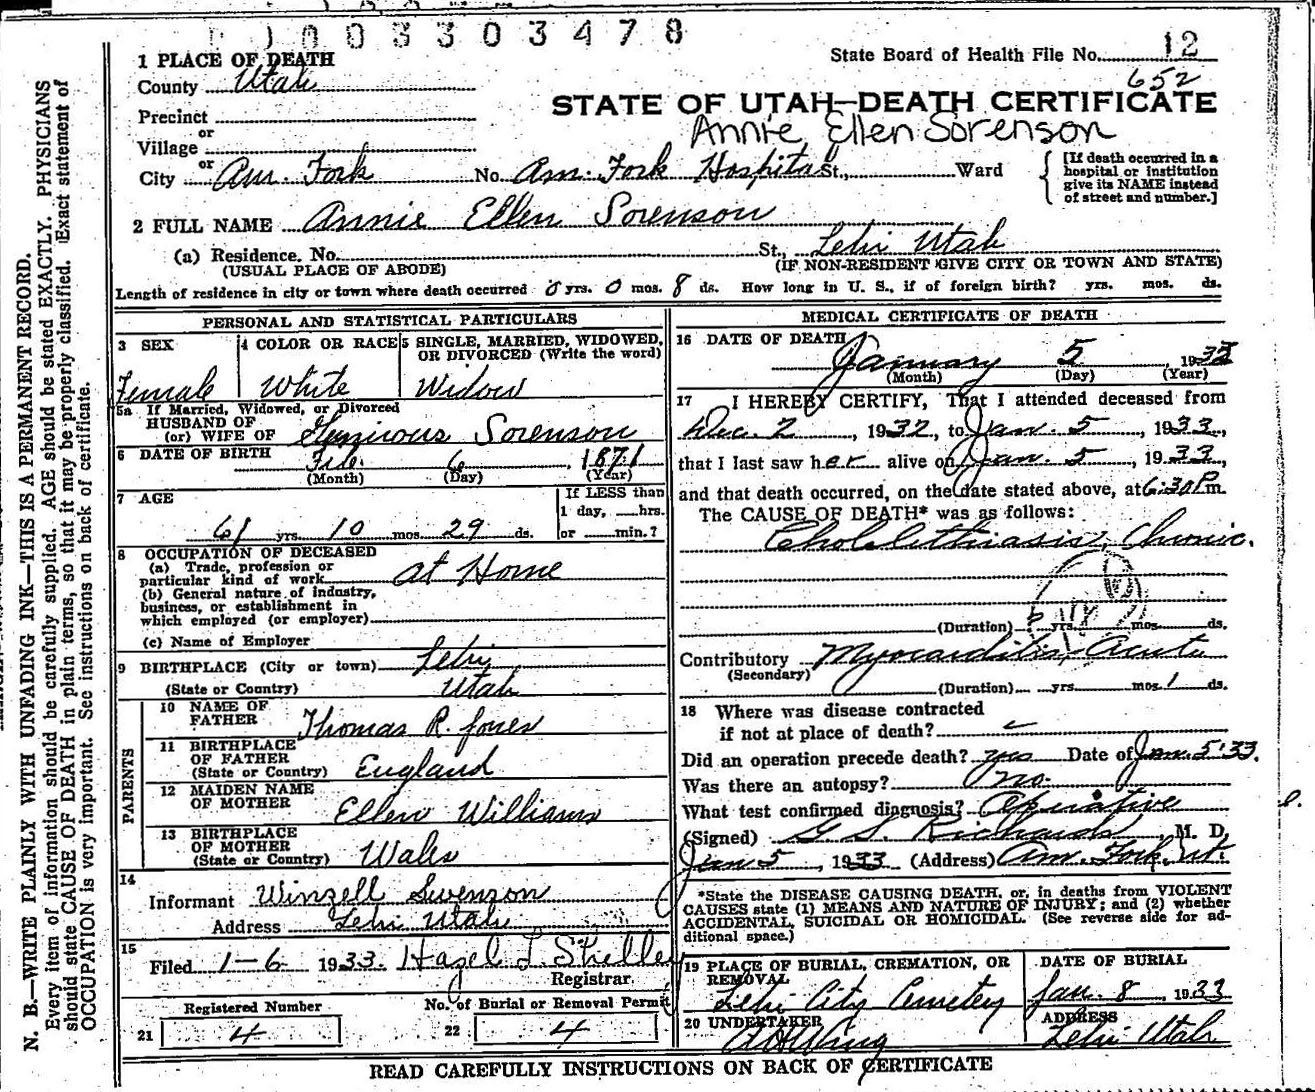 1003303478
1 PLACE OF DEATH
State Board of Health File No. 12
County Utah
652
STATE OF UTAH—DEATH CERTIFICATE
Precinct
or
Annie Ellen Sorenson
Village
or
City Am. Fork No. Am. Fork Hospital St., Ward
[If death occurred in a
hospital or institution
give its NAME instead
of street and number.]
2 FULL NAME Annie Ellen Sorenson
(a) Residence. No. St., Lehi Utah
(USUAL PLACE OF ABODE) (IF NON-RESIDENT GIVE CITY OR TOWN AND STATE)
Length of residence in city or town where death occurred 0 yrs. 0 mos. 8 ds. How long in U. S., if of foreign birth? yrs. mos. ds.
PERSONAL AND STATISTICAL PARTICULARS
3 SEX 4 COLOR OR RACE 5 SINGLE, MARRIED, WIDOWED,
OR DIVORCED (Write the word)
Female White Widow
5a If Married, Widowed, or Divorced
HUSBAND OF
(or) WIFE OF Sorenson
6 DATE OF BIRTH Feb. 6 1871
(Month) (Day) (Year)
7 AGE
If LESS than
1 day, hrs.
61 yrs. 10 mos. 29 ds. or min.?
8 OCCUPATION OF DECEASED
(a) Trade, profession or
particular kind of work at Home
(b) General nature of industry,
business, or establishment in
which employed (or employer)
(c) Name of Employer
9 BIRTHPLACE (City or town) Lehi
(State or Country) Utah
PARENTS
10 NAME OF
FATHER Thomas R. Jones
11 BIRTHPLACE
OF FATHER
(State or Country) England
12 MAIDEN NAME
OF MOTHER Ellen Williams
13 BIRTHPLACE
OF MOTHER
(State or Country) Wales
14
Informant Winzell Swenson
Address Lehi Utah
15
Filed 1-6 1933. Hazel L Shelley
Registrar.
Registered Number No. of Burial or Removal Permit
21 4 22 4
MEDICAL CERTIFICATE OF DEATH
16 DATE OF DEATH January 5 1933
(Month) (Day) (Year)
17 I HEREBY CERTIFY, That I attended deceased from
Dec. 2, 1932, to Jan. 5, 1933,
that I last saw her alive on Jan. 5, 1933,
and that death occurred, on the date stated above, at 6:30 P.m.
The CAUSE OF DEATH* was as follows:
Cholelithiasis, Chronic.
(Duration) yrs. mos. ds.
Contributory Myocarditis, Acute
(Secondary)
(Duration) yrs. mos. 1 ds.
18 Where was disease contracted
if not at place of death?
Did an operation precede death? yes Date of Jan. 5. 33.
Was there an autopsy? no.
What test confirmed diagnosis? Operative
(Signed) G S. Richards, M. D.
Jan 5, 1933 (Address) Am. Fork, Ut.
*State the DISEASE CAUSING DEATH, or, in deaths from VIOLENT
CAUSES state (1) MEANS AND NATURE OF INJURY; and (2) whether
ACCIDENTAL, SUICIDAL OR HOMICIDAL. (See reverse side for ad-
ditional space.)
19 PLACE OF BURIAL, CREMATION, OR
REMOVAL
Lehi City Cemetery
DATE OF BURIAL
Jan. 8, 1933
20 UNDERTAKER
A H Wing
ADDRESS
Lehi Utah
READ CAREFULLY INSTRUCTIONS ON BACK OF CERTIFICATE
N. B.—WRITE PLAINLY WITH UNFADING INK—THIS IS A PERMANENT RECORD.
Every item of information should be carefully supplied. AGE should be stated EXACTLY. PHYSICIANS
should state CAUSE OF DEATH in plain terms, so that it may be properly classified. Exact statement of
OCCUPATION is very important. See instructions on back of certificate.